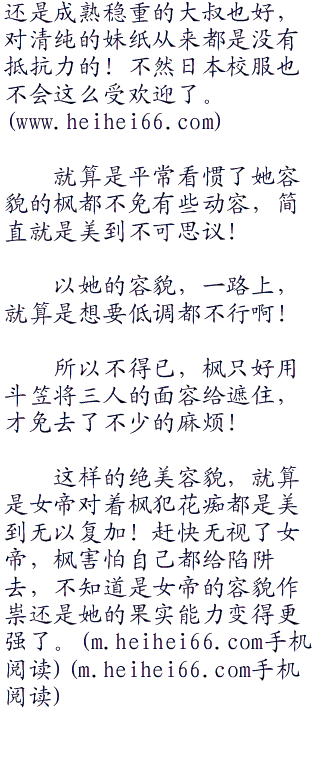 还是成熟稳重的大叔也好，
对清纯的妹纸从来都是没有
抵抗力的！不然日本校服也
不会这么受欢迎了。
(www.heihei66.com)
就算是平常看惯了她容
貌的枫都不免有些动容，简
直就是美到不可思议！
以她的容貌，一路上，
就算是想要低调都不行啊！
所以不得已，枫只好用
斗笠将三人的面容给遮住，
才免去了不少的麻烦！
这样的绝美容貌，就算
是女帝对着枫犯花痴都是美
到无以复加！赶快无视了女
帝，枫害怕自己都给陷阱
去，不知道是女帝的容貌作
祟还是她的果实能力变得更
强了。(m.heihei66.com手机
阅读)(m.heihei66.com手机
阅读)